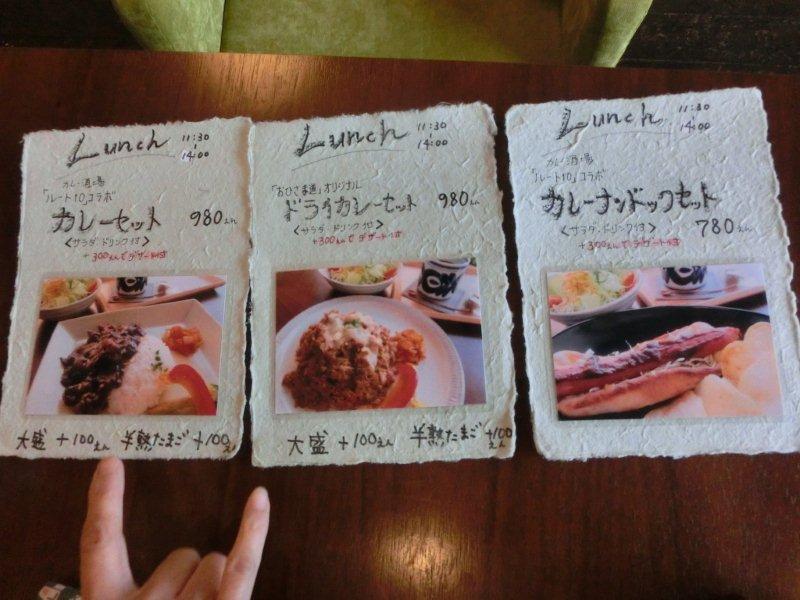 Lunch 11:30
14:00
カレー酒場
「ルート10」コラボ
カレーセット 980えん
<サラダ・ドリンク付>
+300えんでデザート付
大盛 +100えん 半熟たまご +100えん
Lunch 11:30
14:00
「おひさま通」オリジナル
ドライカレーセット 980えん
<サラダ・ドリンク付>
+300えんでデザート付
大盛 +100えん 半熟たまご +100えん
Lunch 11:30
14:00
カレー酒場
「ルート10」コラボ
カレーナンドックセット
780えん
<サラダ・ドリンク付>
+300えんでデザート付